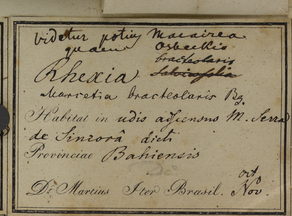 videtur potius Macairea
quam Osbeckia
bracteolaris
Salviaefolia
Rhexia
Marcetia bracteolaris Rg.
Habitat in udis ascensus M. Serra
de Sincorá dicti
Provinciae Bahiensis
oct.
Dr. Martius Iter Brasil. Nov.